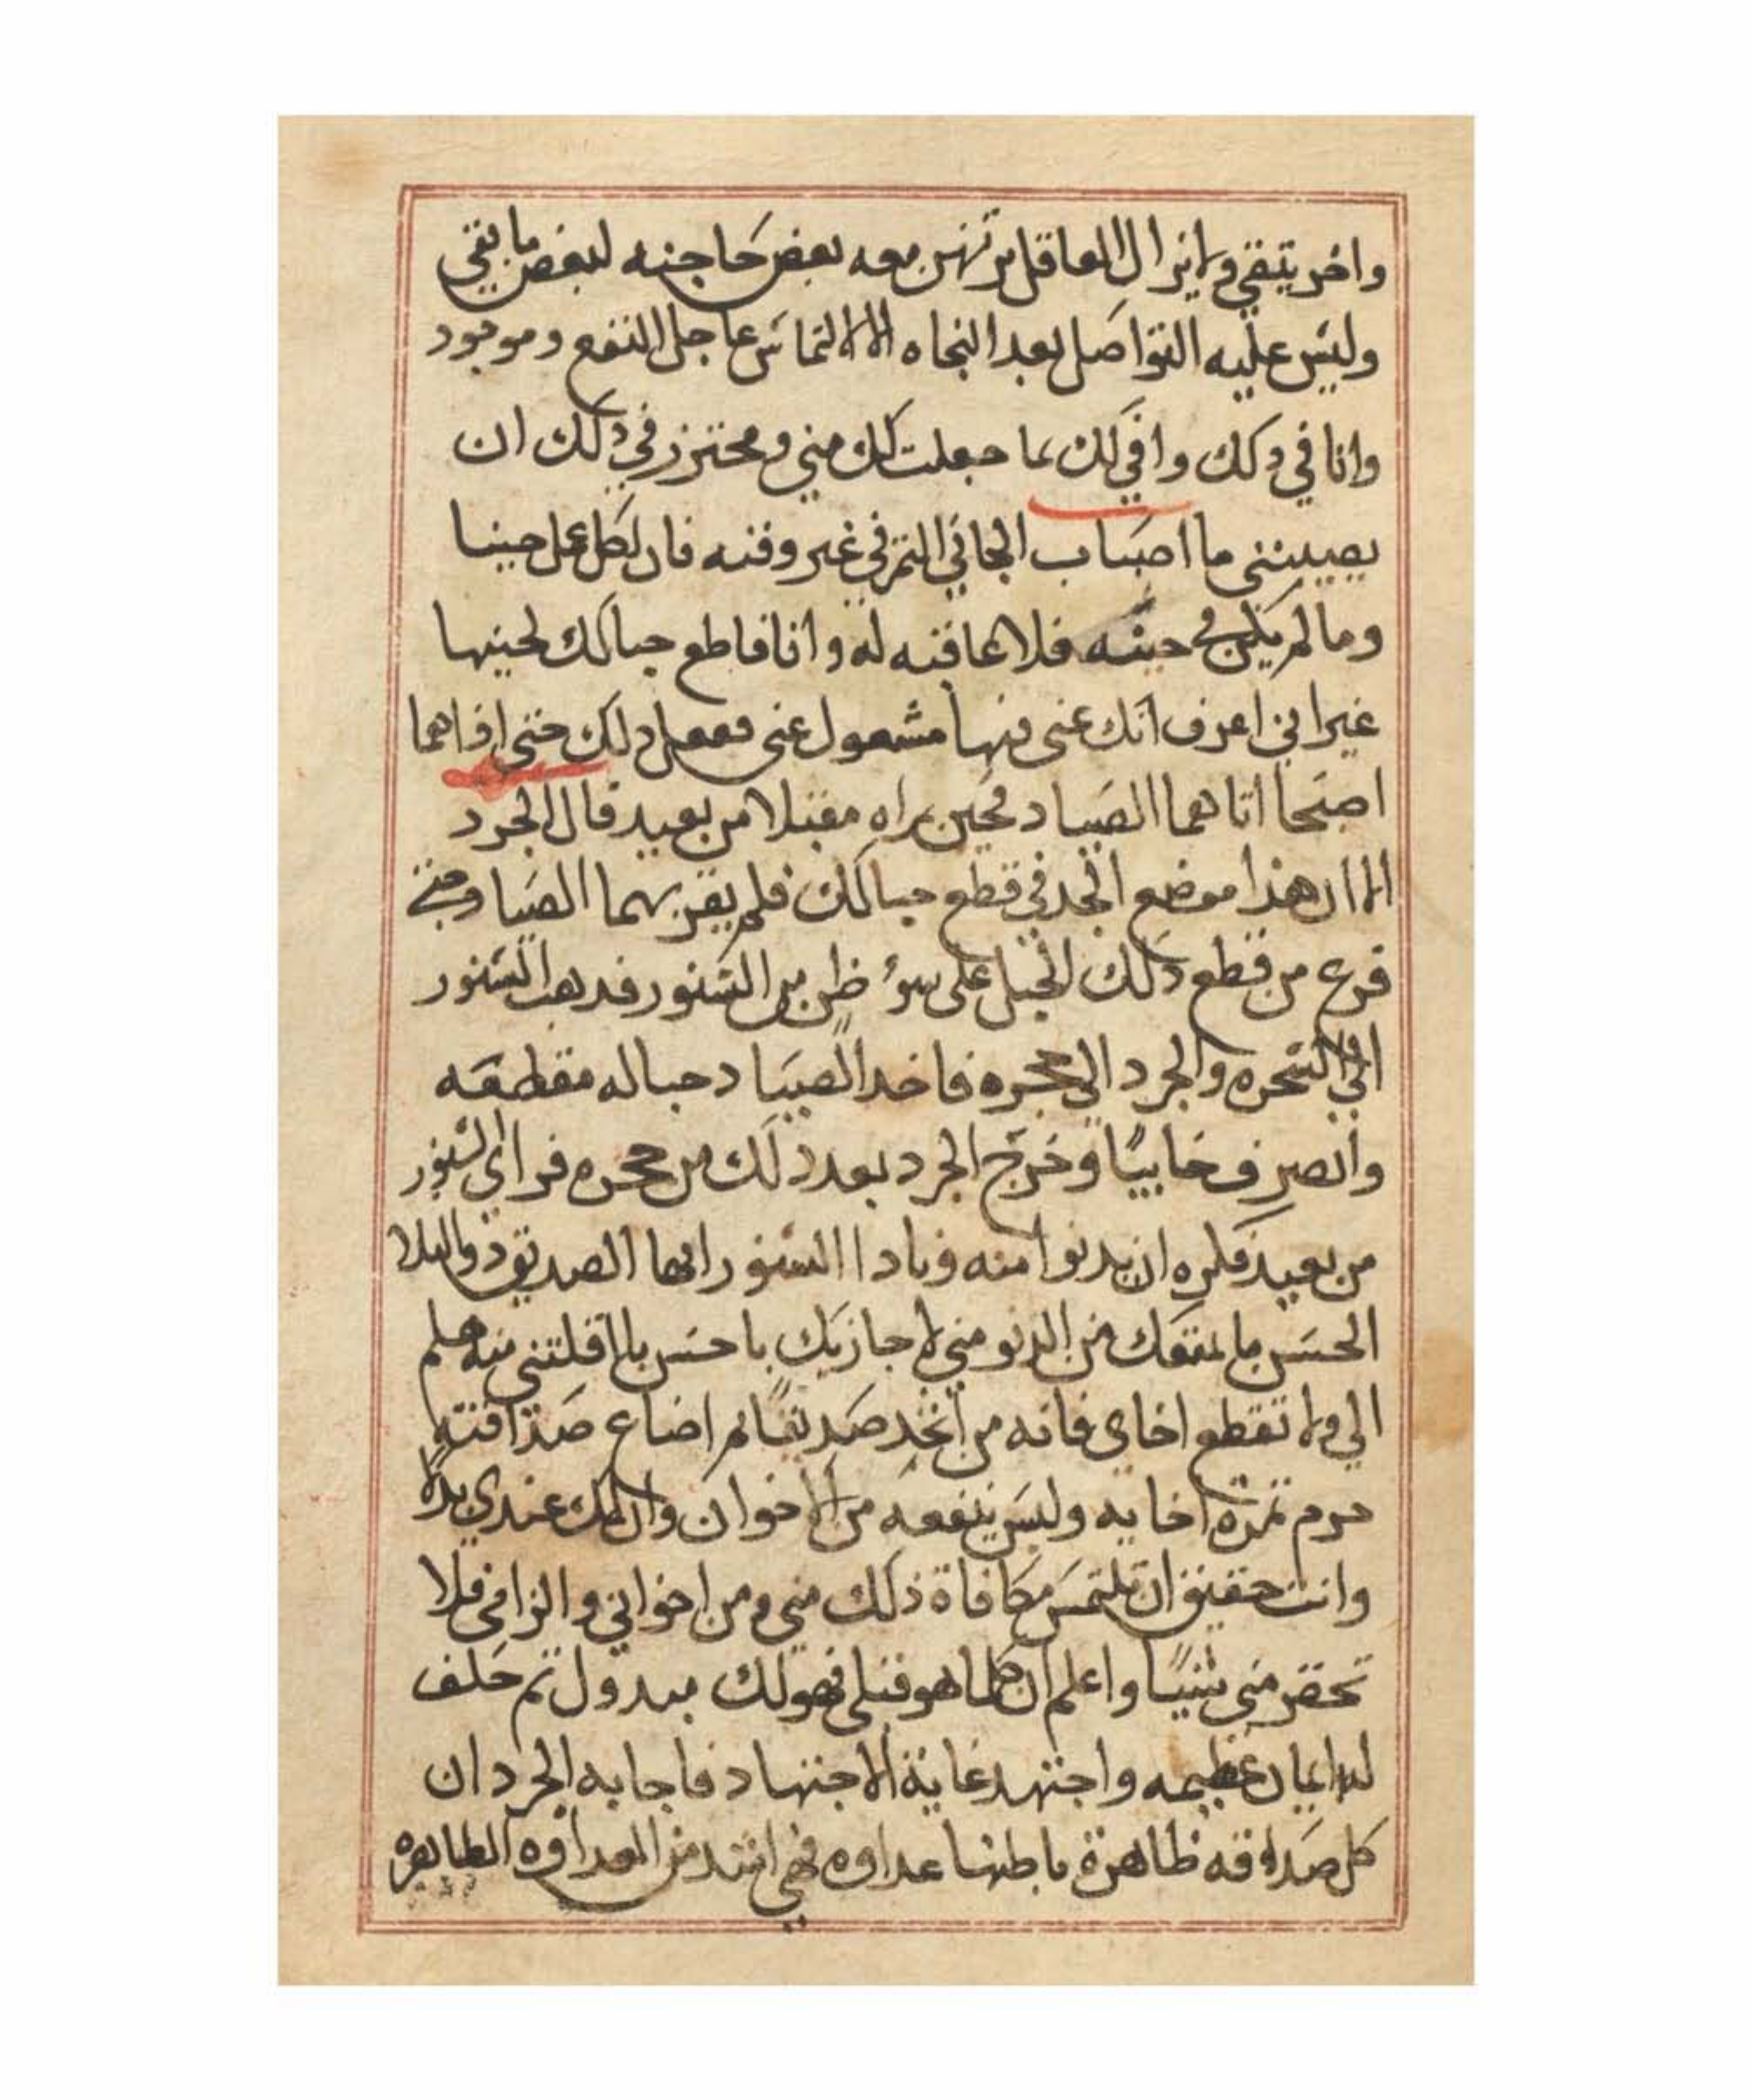 واخر يتقي ولا يزال العاقل يرتهن معه بعض حاجته لبعض ما يتقي
وليس عليه التواصل بعد النجاه الا لالتماس عاجل النفع وموجود
وانا في ذلك وافي لك بما جعلت لك مني ومحترز في ذلك ان
يصيبنني ما اصاب الجاني التمر في غير وقته فان لكل عمل حينا
وما لم يكن في حينه فلا عاقبه له وانا قاطع حبالك لحينها
غير اني اعرف انك عني فيها مشغول عني ففعل ذلك حتي اذا هما
اصبحا اتاهما الصياد فحين راه مقبلا من بعيد قال الجرد
الا ان هذا موضع الجد في قطع حبالك فلم يقربهما الصياد حتي
فرع من قطع ذلك الحبل علي سؤ ظن من السنور فدهب السنور
الي الشجره والجرد الي جحره فاخد الصياد حباله مقطعه
وانصرف خايبًا وخرج الجرد بعد ذلك من جحره فراي السنور
من بعيد فكره ان يدنوا منه وناداا السنور ايها الصديق ذو البلا
الحسن ما يمنعك من الدنو مني لاجازيك باحسن ما افلتني منه هلم
الي ولا تقطع اخاي فانه من اتخد صديقًا ثم اضاع صداقته
حرم ثمرة اخايه وليس ينفعه من الاخوان وان لك عندي يدًا
وانت حقيق ان تلتمس مكافاة ذلك مني ومن اخواني والزامي فلا
تحقر مني شيًا واعلم ان كلما هو قبلي فهو لك مبدول ثم حلف
له ايمان عظيمه واجتهد غاية الاجتهاد فاجابه الجرد ان
كل صداقه ظاهرة باطنها عداوه فهي اشد من العداوه الظاهره